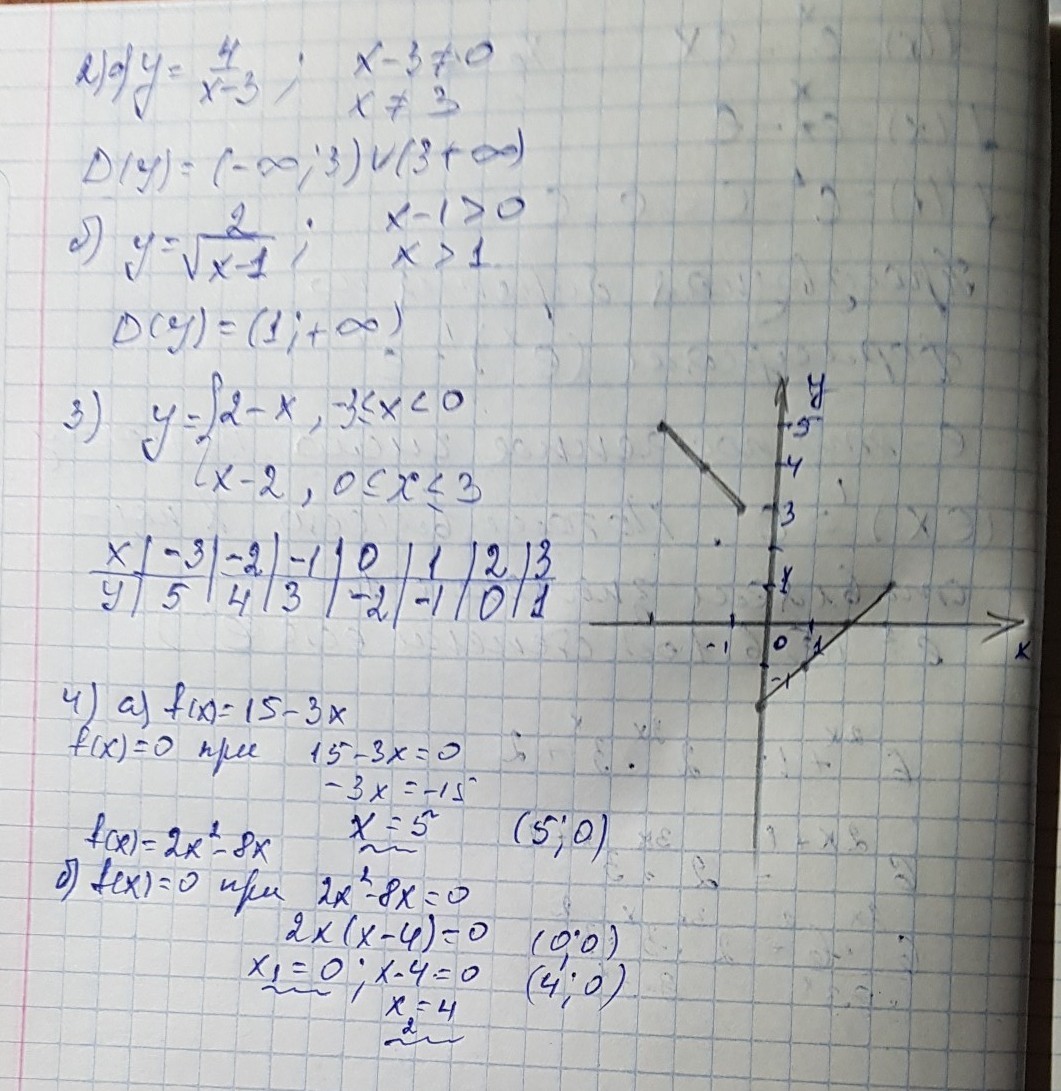 2) а) y = 4/(x-3) ; x-3≠0
x ≠ 3
D(y) = (-∞; 3) ∪ (3 +∞)
б) y = 2/√(x-1) ; x-1>0
x > 1
D(y) = (1; +∞)
3) y = { 2-x , -3≤x<0
x-2 , 0≤x≤3
x | -3 | -2 | -1 | 0 | 1 | 2 | 3
y | 5 | 4 | 3 | -2 | -1 | 0 | 1
y
5
4
3
1
-1 0 1 x
-1
4) а) f(x) = 15-3x
f(x)=0 при 15-3x=0
-3x=-15
x=5 (5; 0)
f(x)=2x²-8x
б) f(x)=0 при 2x²-8x=0
2x(x-4)=0 (0; 0)
x₁=0 ; x-4=0 (4; 0)
x₂=4